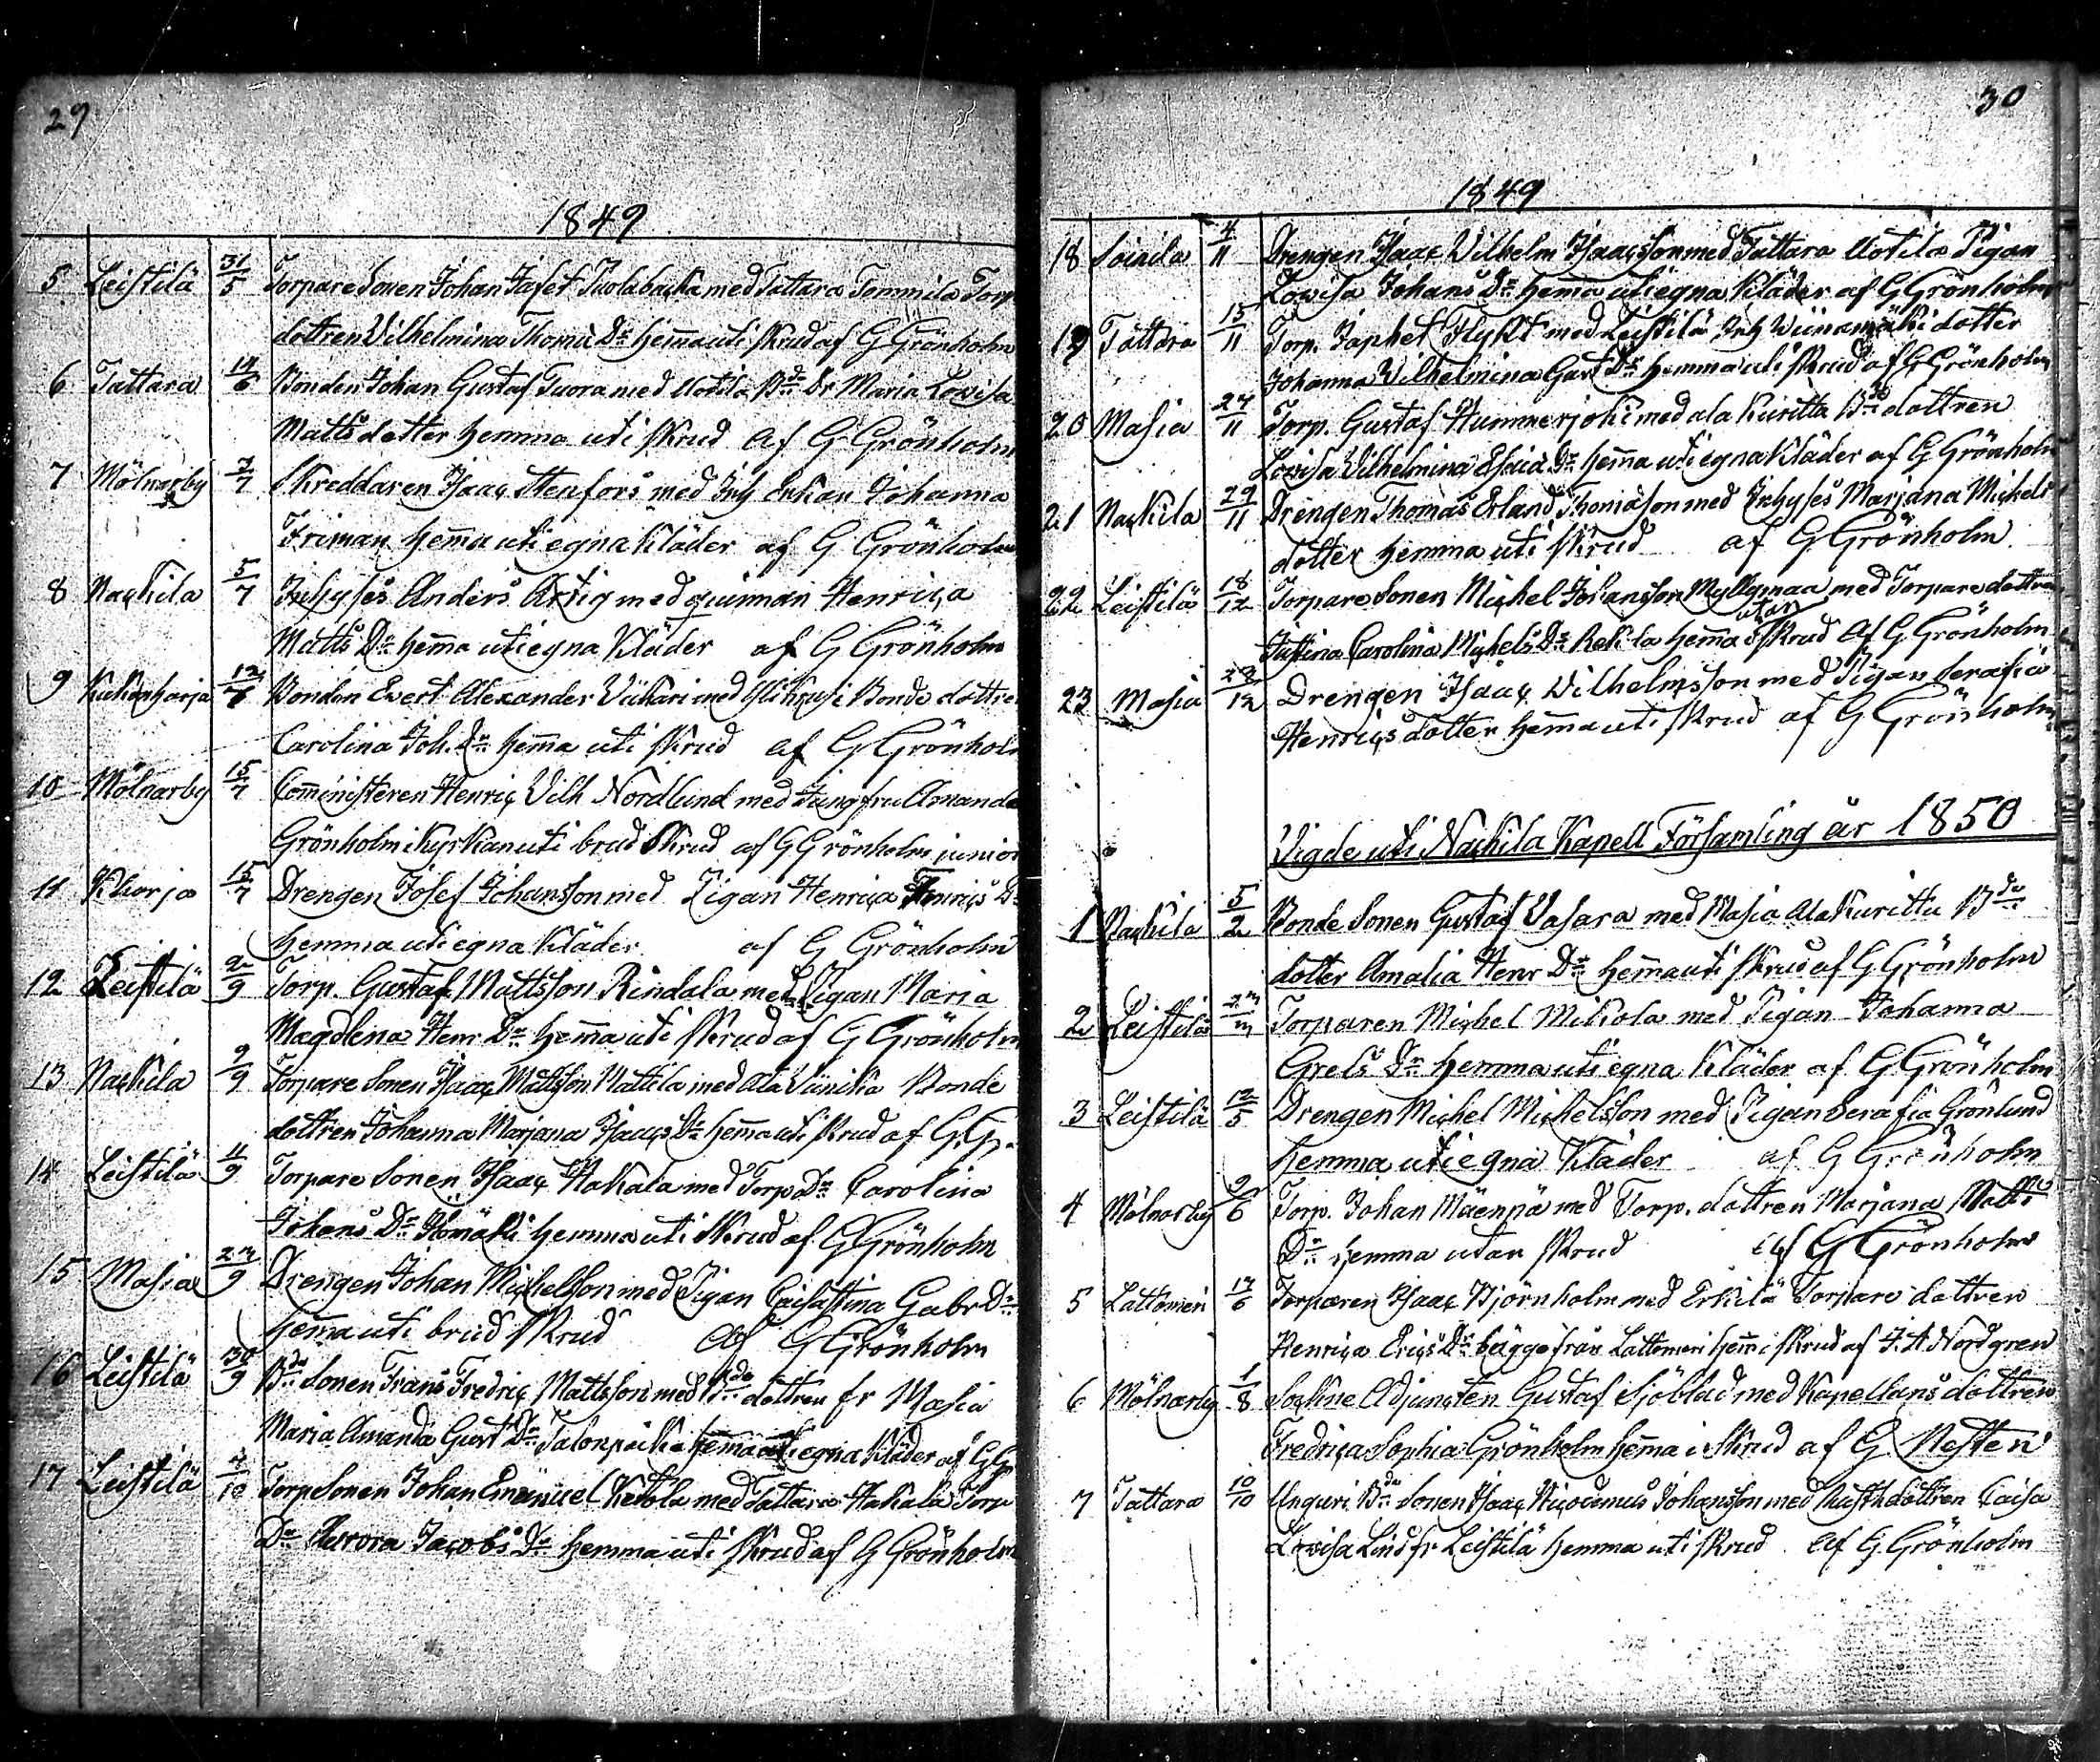 29
1849
5 Leistilä 31/5 Torpare Sonen Johan Jafet med Tattara Tommila Torp
dottren Vilhelmina Thom: Dr hem̄a uti skrud af G Grönholm
6 Tattara 14/6 Bonden Johan Gustaf Tuora med Uotila Bde Dr Maria Lovisa
Matts dotter hemma uti skrud af G Grönholm
7 Mölnarby 3/7 Skreddaren Isaac Stenfors med Inh Enkan Johanna
Friman hem̄a uti egna Kläder af G Grönholm
8 Nackila 5/7 Inhyses Anders Artig med quinnan Henrica
Matts Dr hem̄a uti egna Kläder af G Grönholm
9 Kukonharja 12/7 Bonden Evert Alexander Viikari med Bonde dottre
Carolina Joh. Dr hem̄a uti skrud af G Grönholm
10 Mölnarby 15/7 Com̄inisteren Henric Vilh Nordlund med Jungfru Amanda
Grönholm i Kyrkan uti brud skrud af G Grönholm junior
11 Kharja 15/7 Drengen Josef Johansson med Pigan Henrica Henrics Dr
hemma uti egna Kläder af G Grönholm
12 Leistilä 2/9 Torp. Gustaf Mattsson Rindala med Pigan Maria
Magdlena Henr Dr hem̄a uti skrud af G Grönholm
13 Nackila 9/9 Torpare Sonen Isaac Mattsson Mattila med Ala Viinikä Bonde
dottren Johanna Marjana Isaacs Dr hem̄a uti skrud af G.G.
14 Leistilä 11/9 Torpare Sonen Isaac Hakala med Torp Dr Carolina
Johans Dr hemma uti skrud af G Grönholm
15 Masia 23/9 Drengen Johan Michelsson med Pigan Caisastina Gabr Dr
hem̄a uti brud skrud af G Grönholm
16 Leistilä 30/9 Bde Sonen Frans Fredric Mattsson med Bde dottren fr Masia
Maria Amanda Gust Dr Talonpoika hem̄a uti egna Kläder af G G
17 Leistilä 7/10 Torp Sonen Johan Emanuel Ketola med Tattara Hakala Torp
Dr Aurora Jacobs Dr hemma uti skrud af G Grönholm
30
1849
18 Soinila 4/11 Drengen Isaac Vilhelm Isaacsson med Tattara Uotila Pigan
Lovisa Johans Dr hem̄a uti egna Kläder af G Grönholm
19 Tattara 15/11 Torp. Japhet Flykt med Leistilä Inh Wiinamäki dotter
Johanna Vilhelmina Gust Dr hemma uti skrud af G Grönholm
20 Masia 27/11 Torp. Gustaf Hummerjoki med ala Kuritta Bde dottren
Lovisa Vilhelmina Esaia Dr hem̄a uti egna Kläder af G Grönholm
21 Nackila 29/11 Drengen Thomas Erland Thomasson med Inhyses Marjana Michels
dotter hemma uti skrud af G Grönholm
22 Leistilä 18/12 Torpare Sonen Michel Johansson Myllymaa med Torpare dottren
Justina Carolina Michels Dr Rekila hem̄a utan skrud af G Grönholm
23 Masia 28/12 Drengen Isaac Vilhelmsson med Pigan Serafia
Henrics dotter hem̄a uti skrud af G Grönholm
Vigde uti Nackila Kapell Församling år 1850
1 Nackila 5/2 Bonde Sonen Gustaf Vasara med Masia Ala Kurittu Bde
dotter Amalia Henr Dr hem̄a uti skrud af G Grönholm
2 Leistilä 23/3 Torparen Michel Mikola med Pigan Johanna
Grels Dr hemma uti egna Kläder af G Grönholm
3 Leistilä 12/5 Drengen Michel Michelsson med Pigan Serafia Grönlund
hemma uti egna Kläder af G Grönholm
4 Mölnarby 9/6 Torp. Johan Mäenpä med Torp. dottren Marjana Matts
Dr hemma utan skrud af G Grönholm
5 Lattomeri 17/6 Torparen Isaac Björnholm med Erkilä Torpare dottren
Henrica Erics Dr bägge från Lattomeri hem̄ i skrud af J. A. Nordgren
6 Mölnarby 1/8 Sockne Adjuncten Gustaf Sjöblad med Kapellans dottren
Fredrica Sophia Grönholm hem̄a i skrud af G. Nesten
7 Tattara 10/10 Unguri Bde Sonen Isaac Nicodemus Johansson med dottren Caisa
Lovisa Lind fr Leistilä hemma uti skrud af G. Grönholm